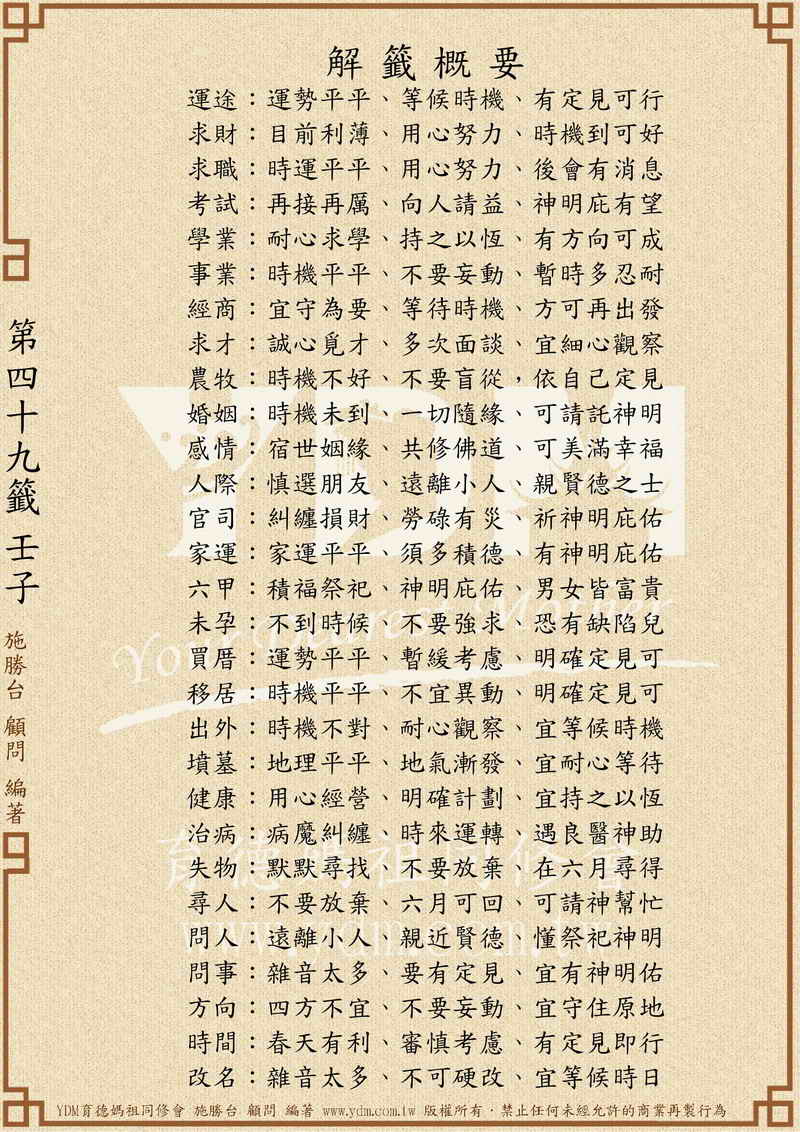 解籤概要
運途：運勢平平、等候時機、有定見可行
求財：目前利薄、用心努力、時機到可好
求職：時運平平、用心努力、後會有消息
考試：再接再厲、向人請益、神明庇有望
學業：耐心求學、持之以恆、有方向可成
事業：時機平平、不要妄動、暫時多忍耐
經商：宜守為要、等待時機、方可再出發
求才：誠心覓才、多次面談、宜細心觀察
農牧：時機不好、不要盲從，依自己定見
婚姻：時機未到、一切隨緣、可請託神明
感情：宿世姻緣、共修佛道、可美滿幸福
人際：慎選朋友、遠離小人、親賢德之士
官司：糾纏損財、勞碌有災、祈神明庇佑
家運：家運平平、須多積德、有神明庇佑
六甲：積福祭祀、神明庇佑、男女皆富貴
未孕：不到時候、不要強求、恐有缺陷兒
買厝：運勢平平、暫緩考慮、明確定見可
移居：時機平平、不宜異動、明確定見可
出外：時機不對、耐心觀察、宜等候時機
墳墓：地理平平、地氣漸發、宜耐心等待
健康：用心經營、明確計劃、宜持之以恆
治病：病魔糾纏、時來運轉、遇良醫神助
失物：默默尋找、不要放棄、在六月尋得
尋人：不要放棄、六月可回、可請神幫忙
問人：遠離小人、親近賢德、懂祭祀神明
問事：雜音太多、要有定見、宜有神明佑
方向：四方不宜、不要妄動、宜守住原地
時間：春天有利、審慎考慮、有定見即行
改名：雜音太多、不可硬改、宜等候時日
第四十九籤 壬子
施勝台 顧問 編著
YDM
Your Dearest Mother
育德媽祖同修會
YDM育德媽祖同修會 施勝台 顧問 編著 www.ydm.com.tw 版權所有．禁止任何未經允許的商業再製行為